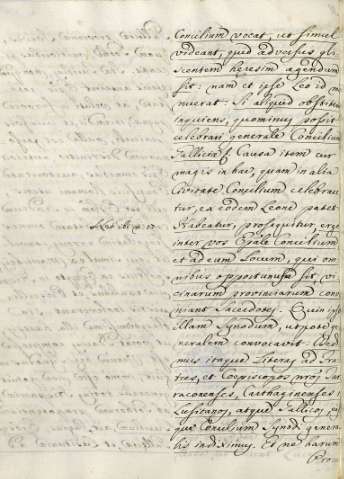 Concilium vocat, ut simul
videant, quid adversus gli-
scentem heresim agendum
sit: nam et ipse Leo id in-
nuerat: Si aliquid obstiterit
inquiens, quominus possit
celebrari generale Concilium
Galliciæ Causa item cur
magis in hac, quam in alia
Civitate Concilium celebrare-
tur, ea eodem Leone patet
Habeatur, prosequitur, ergo
inter vos Epāle Concilium
et ad eam Locum, qui om-
nibus opportunus sit, vi-
cinarum provinciarum conve-
niant Sacerdotes. Quin ip-
illam Synodum, utpote ge-
neralem convocavit: Dedi-
mus itaque literas ad Fra-
tres, et Coepiscopos nr̄os Tar-
raconenses, Carthaginenses,
Lusitanos, atque Gallicos, ei
que Concilium Synodi genera-
lis indiximus. Et ne harum